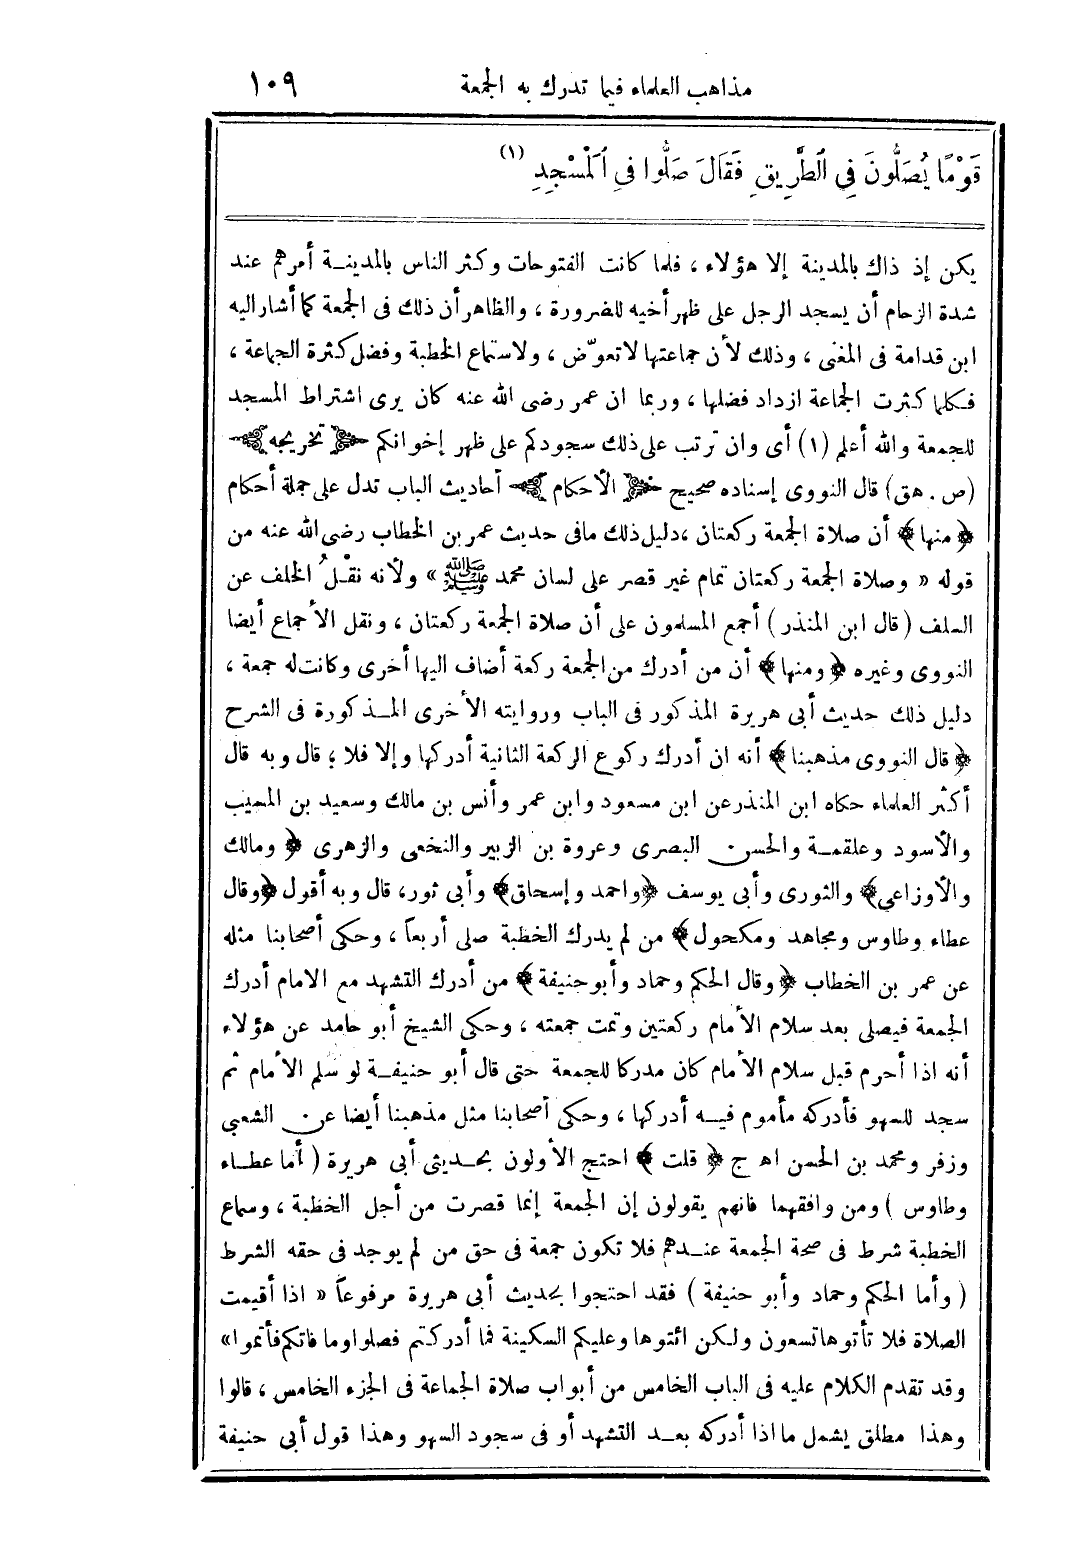 مذاهب العلماء فيما تدرك به الجمعة ١٠٩
قَوْمًا يُصَلُّونَ فِي ٱلطَّرِيقِ فَقَالَ صَلُّوا فِي ٱلْمَسْجِدِ (١)
يكن إذ ذاك بالمدينة إلا هؤلاء ، فلما كانت الفتوحات وكثر الناس بالمدينة أمرهم عند
شدة الزحام أن يسجد الرجل على ظهر أخيه للضرورة ، والظاهر أن ذلك فى الجمعة كما أشار اليه
ابن قدامة فى المغنى ، وذلك لأن جماعتها لا تعوّض ، ولاستماع الخطبة وفضل كثرة الجماعة ،
فكلما كثرت الجماعة ازداد فضلها ، وربما ان عمر رضى الله عنه كان يرى اشتراط المسجد
للجمعة والله أعلم (١) أى وان ترتب على ذلك سجودكم على ظهر إخوانكم ﴿ تخريجه ﴾
(ص . هق) قال النووى إسناده صحيح ﴿ الأحكام ﴾ أحاديث الباب تدل على جملة أحكام
﴿ منها ﴾ أن صلاة الجمعة ركعتان ، دليل ذلك مافى حديث عمر بن الخطاب رضى الله عنه من
قوله « وصلاة الجمعة ركعتان تمام غير قصر على لسان محمد ﷺ » ولأنه نقْلُ الخلف عن
السلف ( قال ابن المنذر ) أجمع المسلمون على أن صلاة الجمعة ركعتان ، ونقل الأجماع أيضا
النووى وغيره ﴿ ومنها ﴾ أن من أدرك من الجمعة ركعة أضاف اليها أخرى وكانت له جمعة ،
دليل ذلك حديث أبى هريرة المذكور فى الباب وروايته الأخرى المذكورة فى الشرح
﴿ قال النووى مذهبنا ﴾ أنه ان أدرك ركوع الركعة الثانية أدركها وإلا فلا ؛ قال وبه قال
أكثر العلماء حكاه ابن المنذر عن ابن مسعود وابن عمر وأنس بن مالك وسعيد بن المسيب
والأسود وعلقمة والحسن البصرى وعروة بن الزبير والنخعى والزهرى ﴿ ومالك
والأوزاعي ﴾ والثورى وأبى يوسف ﴿ واحمد وإسحاق ﴾ وأبى ثور، قال وبه أقول ﴿ وقال
عطاء وطاوس ومجاهد ومكحول ﴾ من لم يدرك الخطبة صلى أربعاً ، وحكى أصحابنا مثله
عن عمر بن الخطاب ﴿ وقال الحكم وحماد وأبو حنيفة ﴾ من أدرك التشهد مع الامام أدرك
الجمعة فيصلى بعد سلام الأمام ركعتين وتمت جمعته ، وحكى الشيخ أبو حامد عن هؤلاء
أنه اذا أحرم قبل سلام الأمام كان مدركا للجمعة حتى قال أبو حنيفة لو سَلم الأمام ثم
سجد للسهو فأدركه مأموم فيه أدركها ، وحكى أصحابنا مثل مذهبنا أيضا عن الشعبي
وزفر ومحمد بن الحسن اه ج ﴿ قلت ﴾ احتج الأولون بحديثى أبى هريرة ( أما عطاء
وطاوس ) ومن وافقهما فانهم يقولون إن الجمعة إنما قصرت من أجل الخطبة ، وسماع
الخطبة شرط فى صحة الجمعة عندهم فلا تكون جمعة فى حق من لم يوجد فى حقه الشرط
( وأما الحكم وحماد وأبو حنيفة ) فقد احتجوا بحديث أبى هريرة مرفوعاً « اذا أقيمت
الصلاة فلا تأتوها تسعون ولكن ائتوها وعليكم السكينة فما أدركتم فصلوا وما فاتكم فأتموا »
وقد تقدم الكلام عليه فى الباب الخامس من أبواب صلاة الجماعة فى الجزء الخامس ، قالوا
وهذا مطلق يشمل ما اذا أدركه بعد التشهد أو فى سجود السهو وهذا قول أبى حنيفة